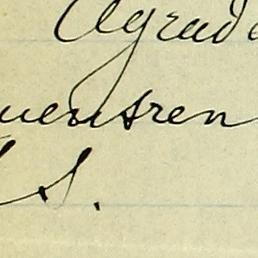 Agrad
uentren
S.